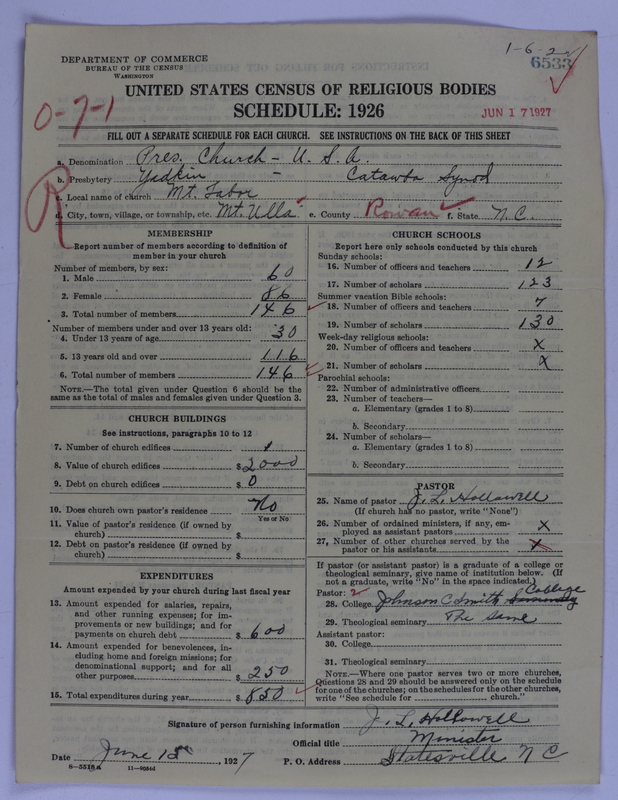 1-6-2
6533
DEPARTMENT OF COMMERCE
BUREAU OF THE CENSUS
WASHINGTON
UNITED STATES CENSUS OF RELIGIOUS BODIES
SCHEDULE: 1926
JUN 17 1927
0-7-1
R
FILL OUT A SEPARATE SCHEDULE FOR EACH CHURCH. SEE INSTRUCTIONS ON THE BACK OF THIS SHEET
a. Denomination Pres. Church - U. S. A.
b. Presbytery Yadkin - Catawba Synod
c. Local name of church Mt. Tabor
d. City, town, village, or township, etc. Mt. Ulla e. County Rowan f. State N. C.
MEMBERSHIP
Report number of members according to definition of
member in your church
Number of members, by sex:
1. Male 60
2. Female 86
3. Total number of members 146
Number of members under and over 13 years old:
4. Under 13 years of age 30
5. 13 years old and over 116
6. Total number of members 146
NOTE.—The total given under Question 6 should be the
same as the total of males and females given under Question 3.
CHURCH BUILDINGS
See instructions, paragraphs 10 to 12
7. Number of church edifices 1
8. Value of church edifices $ 2000
9. Debt on church edifices $ 0
10. Does church own pastor's residence? No
Yes or No
11. Value of pastor's residence (if owned by
church) $
12. Debt on pastor's residence (if owned by
church) $
EXPENDITURES
Amount expended by your church during last fiscal year
13. Amount expended for salaries, repairs,
and other running expenses; for im-
provements or new buildings; and for
payments on church debt $ 600
14. Amount expended for benevolences, in-
cluding home and foreign missions; for
denominational support; and for all
other purposes $ 250
15. Total expenditures during year $ 850
CHURCH SCHOOLS
Report here only schools conducted by this church
Sunday schools:
16. Number of officers and teachers 12
17. Number of scholars 123
Summer vacation Bible schools:
18. Number of officers and teachers 7
19. Number of scholars 130
Week-day religious schools:
20. Number of officers and teachers X
21. Number of scholars X
Parochial schools:
22. Number of administrative officers
23. Number of teachers—
a. Elementary (grades 1 to 8)
b. Secondary
24. Number of scholars—
a. Elementary (grades 1 to 8)
b. Secondary
PASTOR
25. Name of pastor J. L. Hollowell
(If church has no pastor, write "None")
26. Number of ordained ministers, if any, em-
ployed as assistant pastors X
27. Number of other churches served by the
pastor or his assistants X
If pastor (or assistant pastor) is a graduate of a college or
theological seminary, give name of institution below. (If
not a graduate, write "No" in the space indicated.)
Pastor: 2
28. College Johnson C Smith College
29. Theological seminary The same
Assistant pastor:
30. College
31. Theological seminary
NOTE.—Where one pastor serves two or more churches,
Questions 28 and 29 should be answered only on the schedule
for one of the churches; on the schedules for the other churches,
write "See schedule for church."
Signature of person furnishing information J. L. Hollowell
Official title Minister
Date June 15 , 1927 P. O. Address Statesville N C
8-5518a